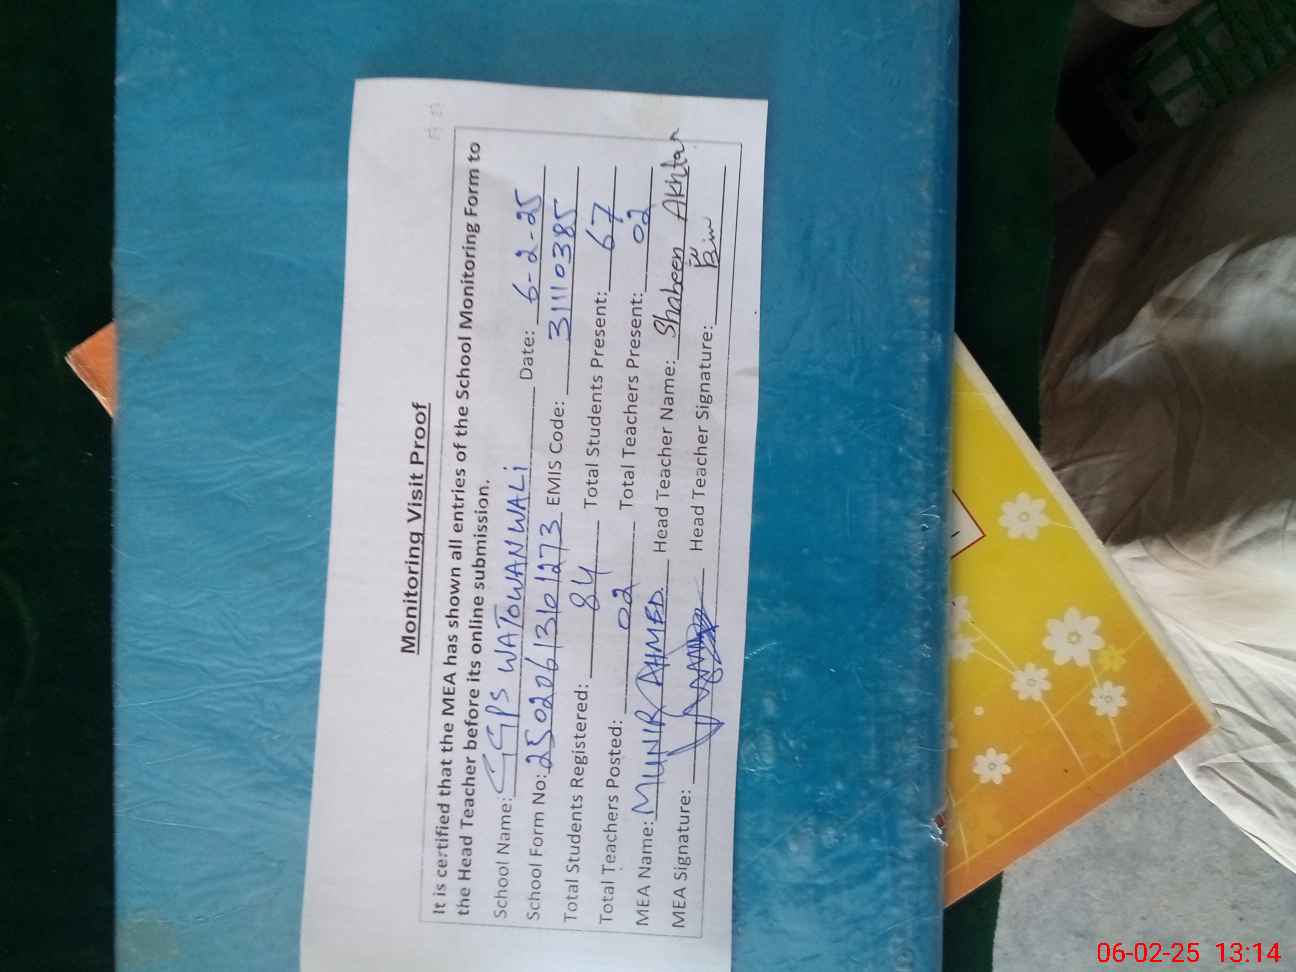 Monitoring Visit Proof
It is certified that the MEA has shown all entries of the School Monitoring Form to
the Head Teacher before its online submission.
School Name: GGPS WATOWANWALI Date: 6-2-25
School Form No: 25020613101273 EMIS Code: 31110385
Total Students Registered: 84 Total Students Present: 67
Total Teachers Posted: 02 Total Teachers Present: 02
MEA Name: MUNIR AHMED Head Teacher Name: Shabeen Akhtar
MEA Signature: Head Teacher Signature:
06-02-25 13:14